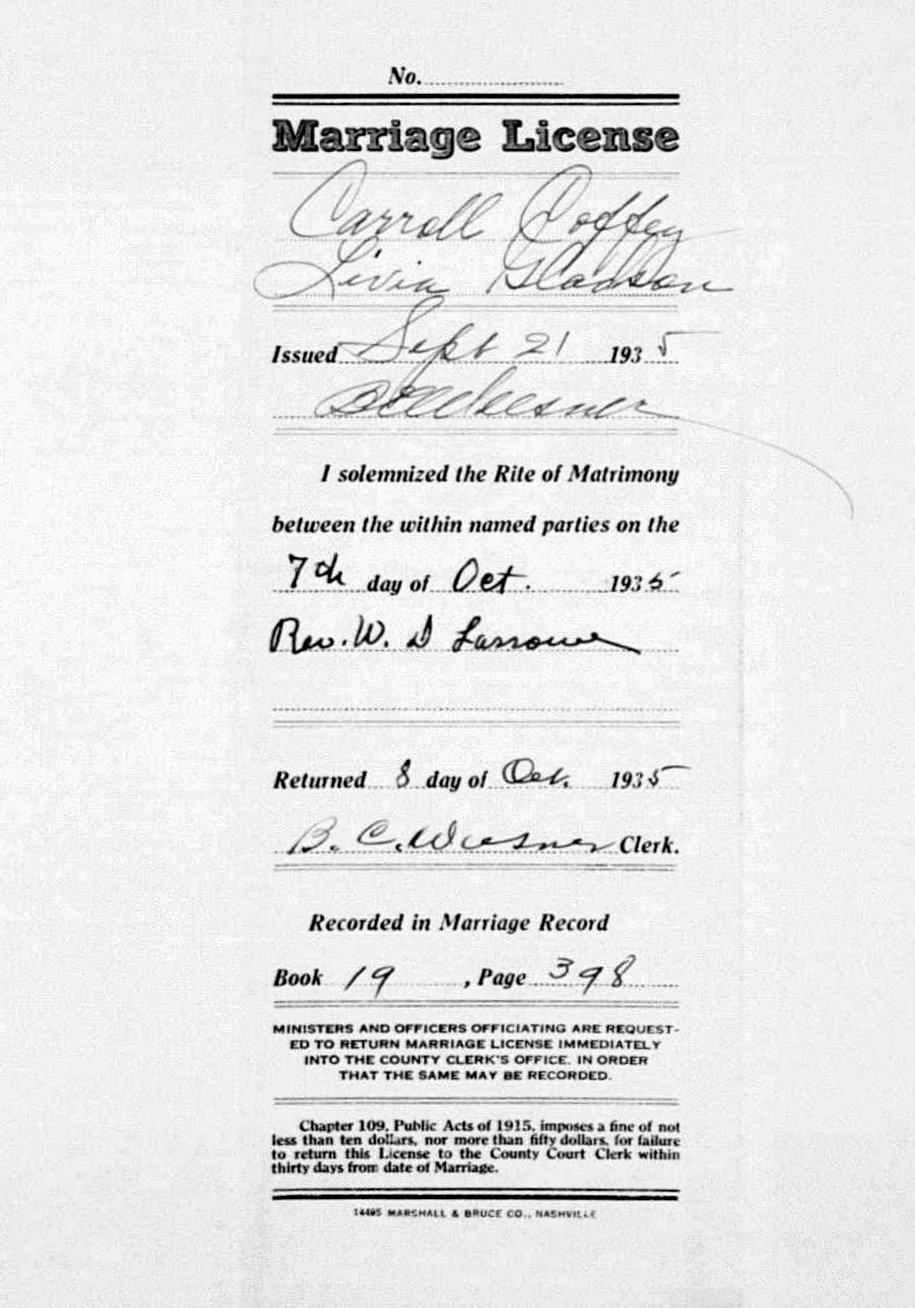 No.
Marriage License
Carroll Coffey
Livia Gladson
Issued Sept 21 1935
B C Wiesner
I solemnized the Rite of Matrimony
between the within named parties on the
7th day of Oct. 1935
Rev. W. D
Returned 8 day of Oct. 1935
B. C. Wiesner Clerk.
Recorded in Marriage Record
Book 19, Page 398
MINISTERS AND OFFICERS OFFICIATING ARE REQUEST-
ED TO RETURN MARRIAGE LICENSE IMMEDIATELY
INTO THE COUNTY CLERK'S OFFICE, IN ORDER
THAT THE SAME MAY BE RECORDED.
Chapter 109, Public Acts of 1915, imposes a fine of not
less than ten dollars, nor more than fifty dollars, for failure
to return this License to the County Court Clerk within
thirty days from date of Marriage.
14495 MARSHALL & BRUCE CO., NASHVILLE